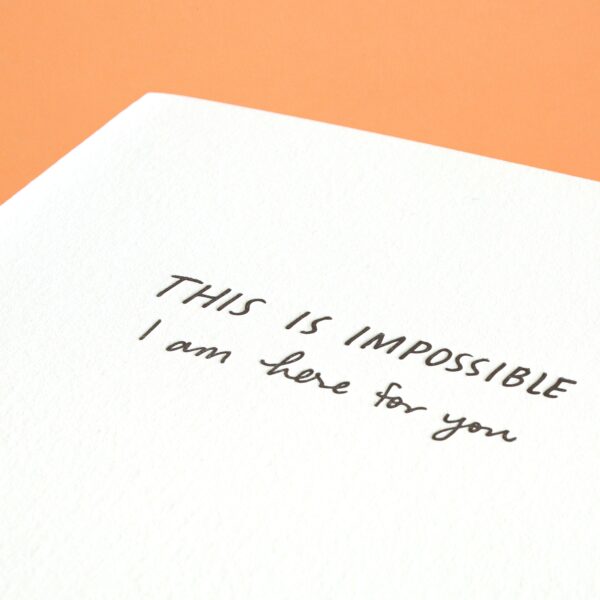 THIS IS IMPOSSIBLE
I am here for you